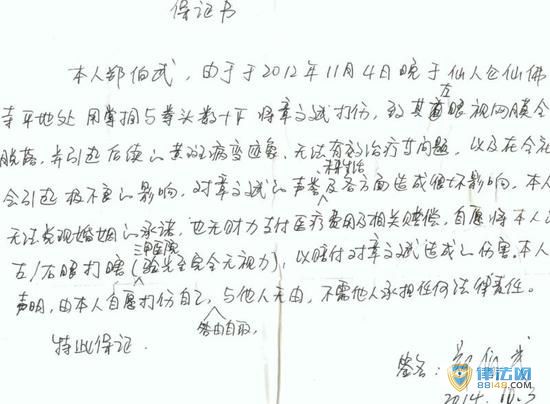 保证书
本人郑伯武，由于于2012年11月4日晚于仙人仑仙佛
寺平地处用掌掴与拳头数十下将章文斌打伤，致其左眼视网膜全
脱落，并引起后续的黄斑病变迹象，无法有效治疗等问题，以及在令社
会引起极不良的影响，对章文斌的声誉及各方面造成很坏影响，本人
无法兑现婚姻的承诺，也无财力支付医疗费用及相关赔偿，自愿将本人的
左/右眼打瞎（三甲医院验光至完全无视力），以赔付对章文斌造成的伤害。本人
声明，由本人自愿打伤自己，与他人无由，不需他人承担任何法律责任。
咎由自取
特此保证。
签名：郑伯武
2014.10.3
律法网
88148.com